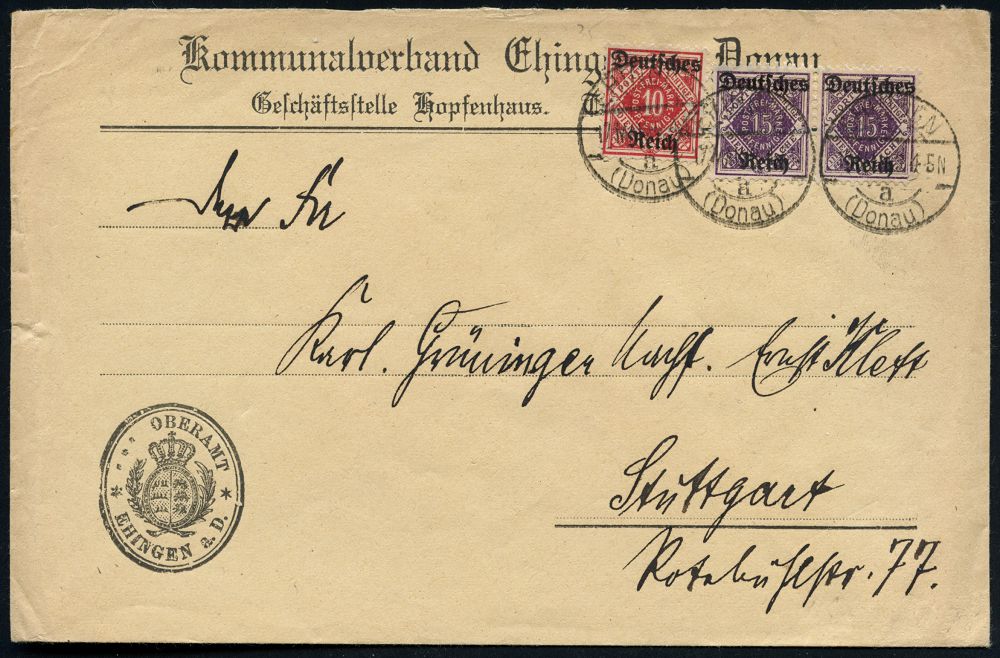 Kommunalverband Ehingen Donau
Geschäftsstelle Hopfenhaus.
Deutsches
10
Reich
Deutsches
15
Reich
Deutsches
15
Reich
a
(Donau)
a
(Donau)
4-5N
a
(Donau)
An
Karl. Grüninger Nachf. Ernst Klett
Stuttgart
Rotebühlstr. 77.
OBERAMT
EHINGEN a. D.